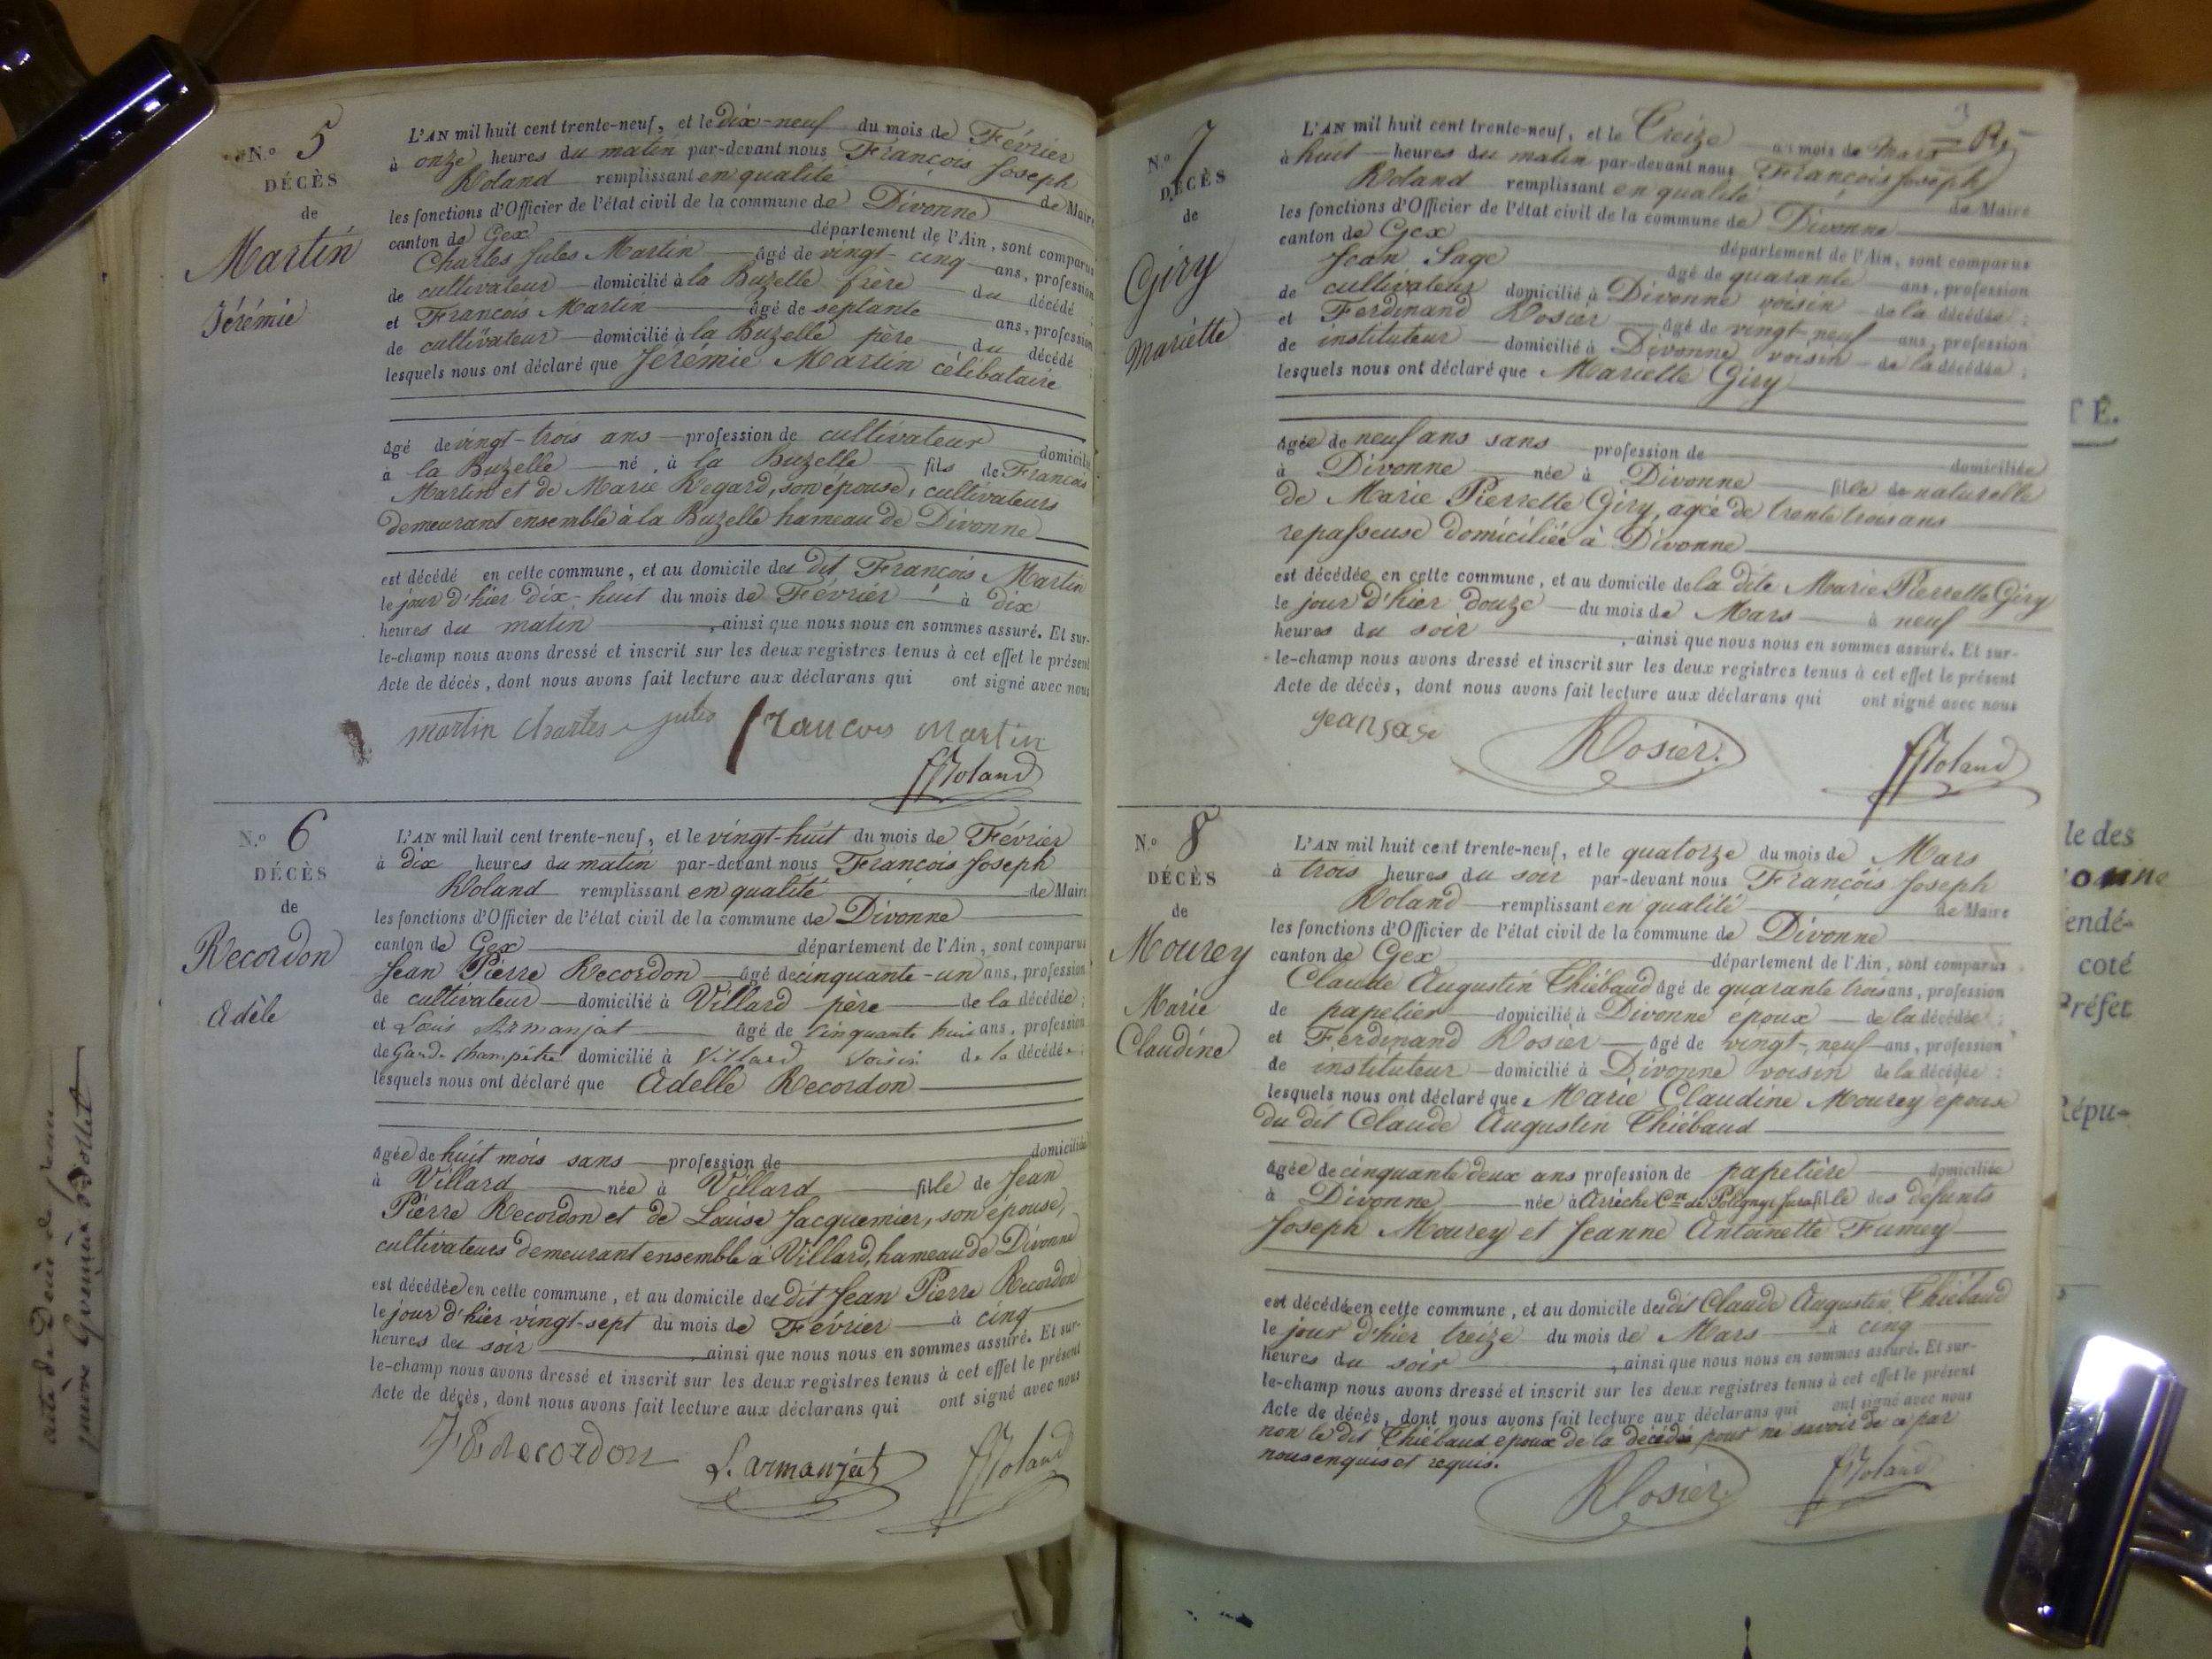 N.o 5
DÉCÈS
de
Martin
Jérémie
L'AN mil huit cent trente-neuf, et le dix-neuf du mois de Février
à onze heures du matin par-devant nous François Joseph
Roland remplissant en qualité de Maire
les fonctions d'Officier de l'état civil de la commune de Divonne
canton de Gex département de l'Ain, sont comparus
Charles Jules Martin âgé de vingt-cinq ans, profession
de cultivateur domicilié à la Buzelle frère du décédé
et François Martin âgé de septante ans, profession
de cultivateur domicilié à la Buzelle père du décédé
lesquels nous ont déclaré que Jérémie Martin célibataire
âgé de vingt-trois ans profession de cultivateur domicilié
à la Buzelle né à la Buzelle fils de François
Martin et de Marie Regard, son épouse, cultivateurs
demeurant ensemble à la Buzelle hameau de Divonne
est décédé en cette commune, et au domicile du dit François Martin
le jour d'hier dix-huit du mois de Février à dix
heures du matin, ainsi que nous nous en sommes assuré. Et sur-
le-champ nous avons dressé et inscrit sur les deux registres tenus à cet effet le présent
Acte de décès, dont nous avons fait lecture aux déclarans qui ont signé avec nous
martin charles jules françois martin
fJRoland
N.o 6
DÉCÈS
de
Recordon
Adèle
L'AN mil huit cent trente-neuf, et le vingt-huit du mois de Février
à dix heures du matin par-devant nous François Joseph
Roland remplissant en qualité de Maire
les fonctions d'Officier de l'état civil de la commune de Divonne
canton de Gex département de l'Ain, sont comparus
Jean Pierre Recordon âgé de cinquante-un ans, profession
de cultivateur domicilié à Villard père de la décédée;
et Louis Armanjat âgé de cinquante huit ans, profession
de Garde champêtre domicilié à Villard voisin de la décédée;
lesquels nous ont déclaré que Adelle Recordon
âgée de huit mois sans profession de domiciliée
à Villard née à Villard fille de Jean
Pierre Recordon et de Louise Jacquemier, son épouse,
cultivateurs demeurant ensemble à Villard, hameau de Divonne
est décédée en cette commune, et au domicile du dit Jean Pierre Recordon
le jour d'hier vingt-sept du mois de Février à cinq
heures du soir, ainsi que nous nous en sommes assuré. Et sur-
le-champ nous avons dressé et inscrit sur les deux registres tenus à cet effet le présent
Acte de décès, dont nous avons fait lecture aux déclarans qui ont signé avec nous
JP Recordon L. armanjat fJRoland
N.o 7
DÉCÈS
de
Giry
Mariette
L'AN mil huit cent trente-neuf, et le Treize du mois de Mars
à huit heures du matin par-devant nous François Joseph
Roland remplissant en qualité de Maire
les fonctions d'Officier de l'état civil de la commune de Divonne
canton de Gex département de l'Ain, sont comparus
Jean Sage âgé de quarante ans, profession
de cultivateur domicilié à Divonne voisin de la décédée;
et Ferdinand Rosier âgé de vingt-neuf ans, profession
de instituteur domicilié à Divonne voisin de la décédée;
lesquels nous ont déclaré que Mariette Giry
âgée de neuf ans sans profession de domiciliée
à Divonne née à Divonne fille de naturelle
de Marie Pierrette Giry, agée de trente trois ans
repasseuse domiciliée à Divonne
est décédée en cette commune, et au domicile de la dite Marie Pierrette Giry
le jour d'hier douze du mois de Mars à neuf
heures du soir, ainsi que nous nous en sommes assuré. Et sur-
le-champ nous avons dressé et inscrit sur les deux registres tenus à cet effet le présent
Acte de décès, dont nous avons fait lecture aux déclarans qui ont signé avec nous
jean sage Rosier. fJRoland
N.o 8
DÉCÈS
de
Mourey
Marie
Claudine
L'AN mil huit cent trente-neuf, et le quatorze du mois de Mars
à trois heures du soir par-devant nous François Joseph
Roland remplissant en qualité de Maire
les fonctions d'Officier de l'état civil de la commune de Divonne
canton de Gex département de l'Ain, sont comparus
Claude Augustin Thiébaud âgé de quarante trois ans, profession
de papetier domicilié à Divonne époux de la décédée;
et Ferdinand Rosier âgé de vingt-neuf ans, profession
de instituteur domicilié à Divonne voisin de la décédée;
lesquels nous ont déclaré que Marie Claudine Mourey épouse
du dit Claude Augustin Thiébaud
âgée de cinquante deux ans profession de papetière domiciliée
à Divonne née à Arrèche Cn de Poligny Jura fille des defunts
Joseph Mourey et Jeanne Antoinette Fumey
est décédée en cette commune, et au domicile du dit Claude Augustin Thiébaud
le jour d'hier treize du mois de Mars à cinq
heures du soir, ainsi que nous nous en sommes assuré. Et sur-
le-champ nous avons dressé et inscrit sur les deux registres tenus à cet effet le présent
Acte de décès, dont nous avons fait lecture aux déclarans qui ont signé avec nous
non le dit Thiébaud epoux de la décédée pour ne savoir de ce par
nous enquis et requis.
Rosier fJRoland
TÉ.
le des
endé-
coté
Préfet
Répu-